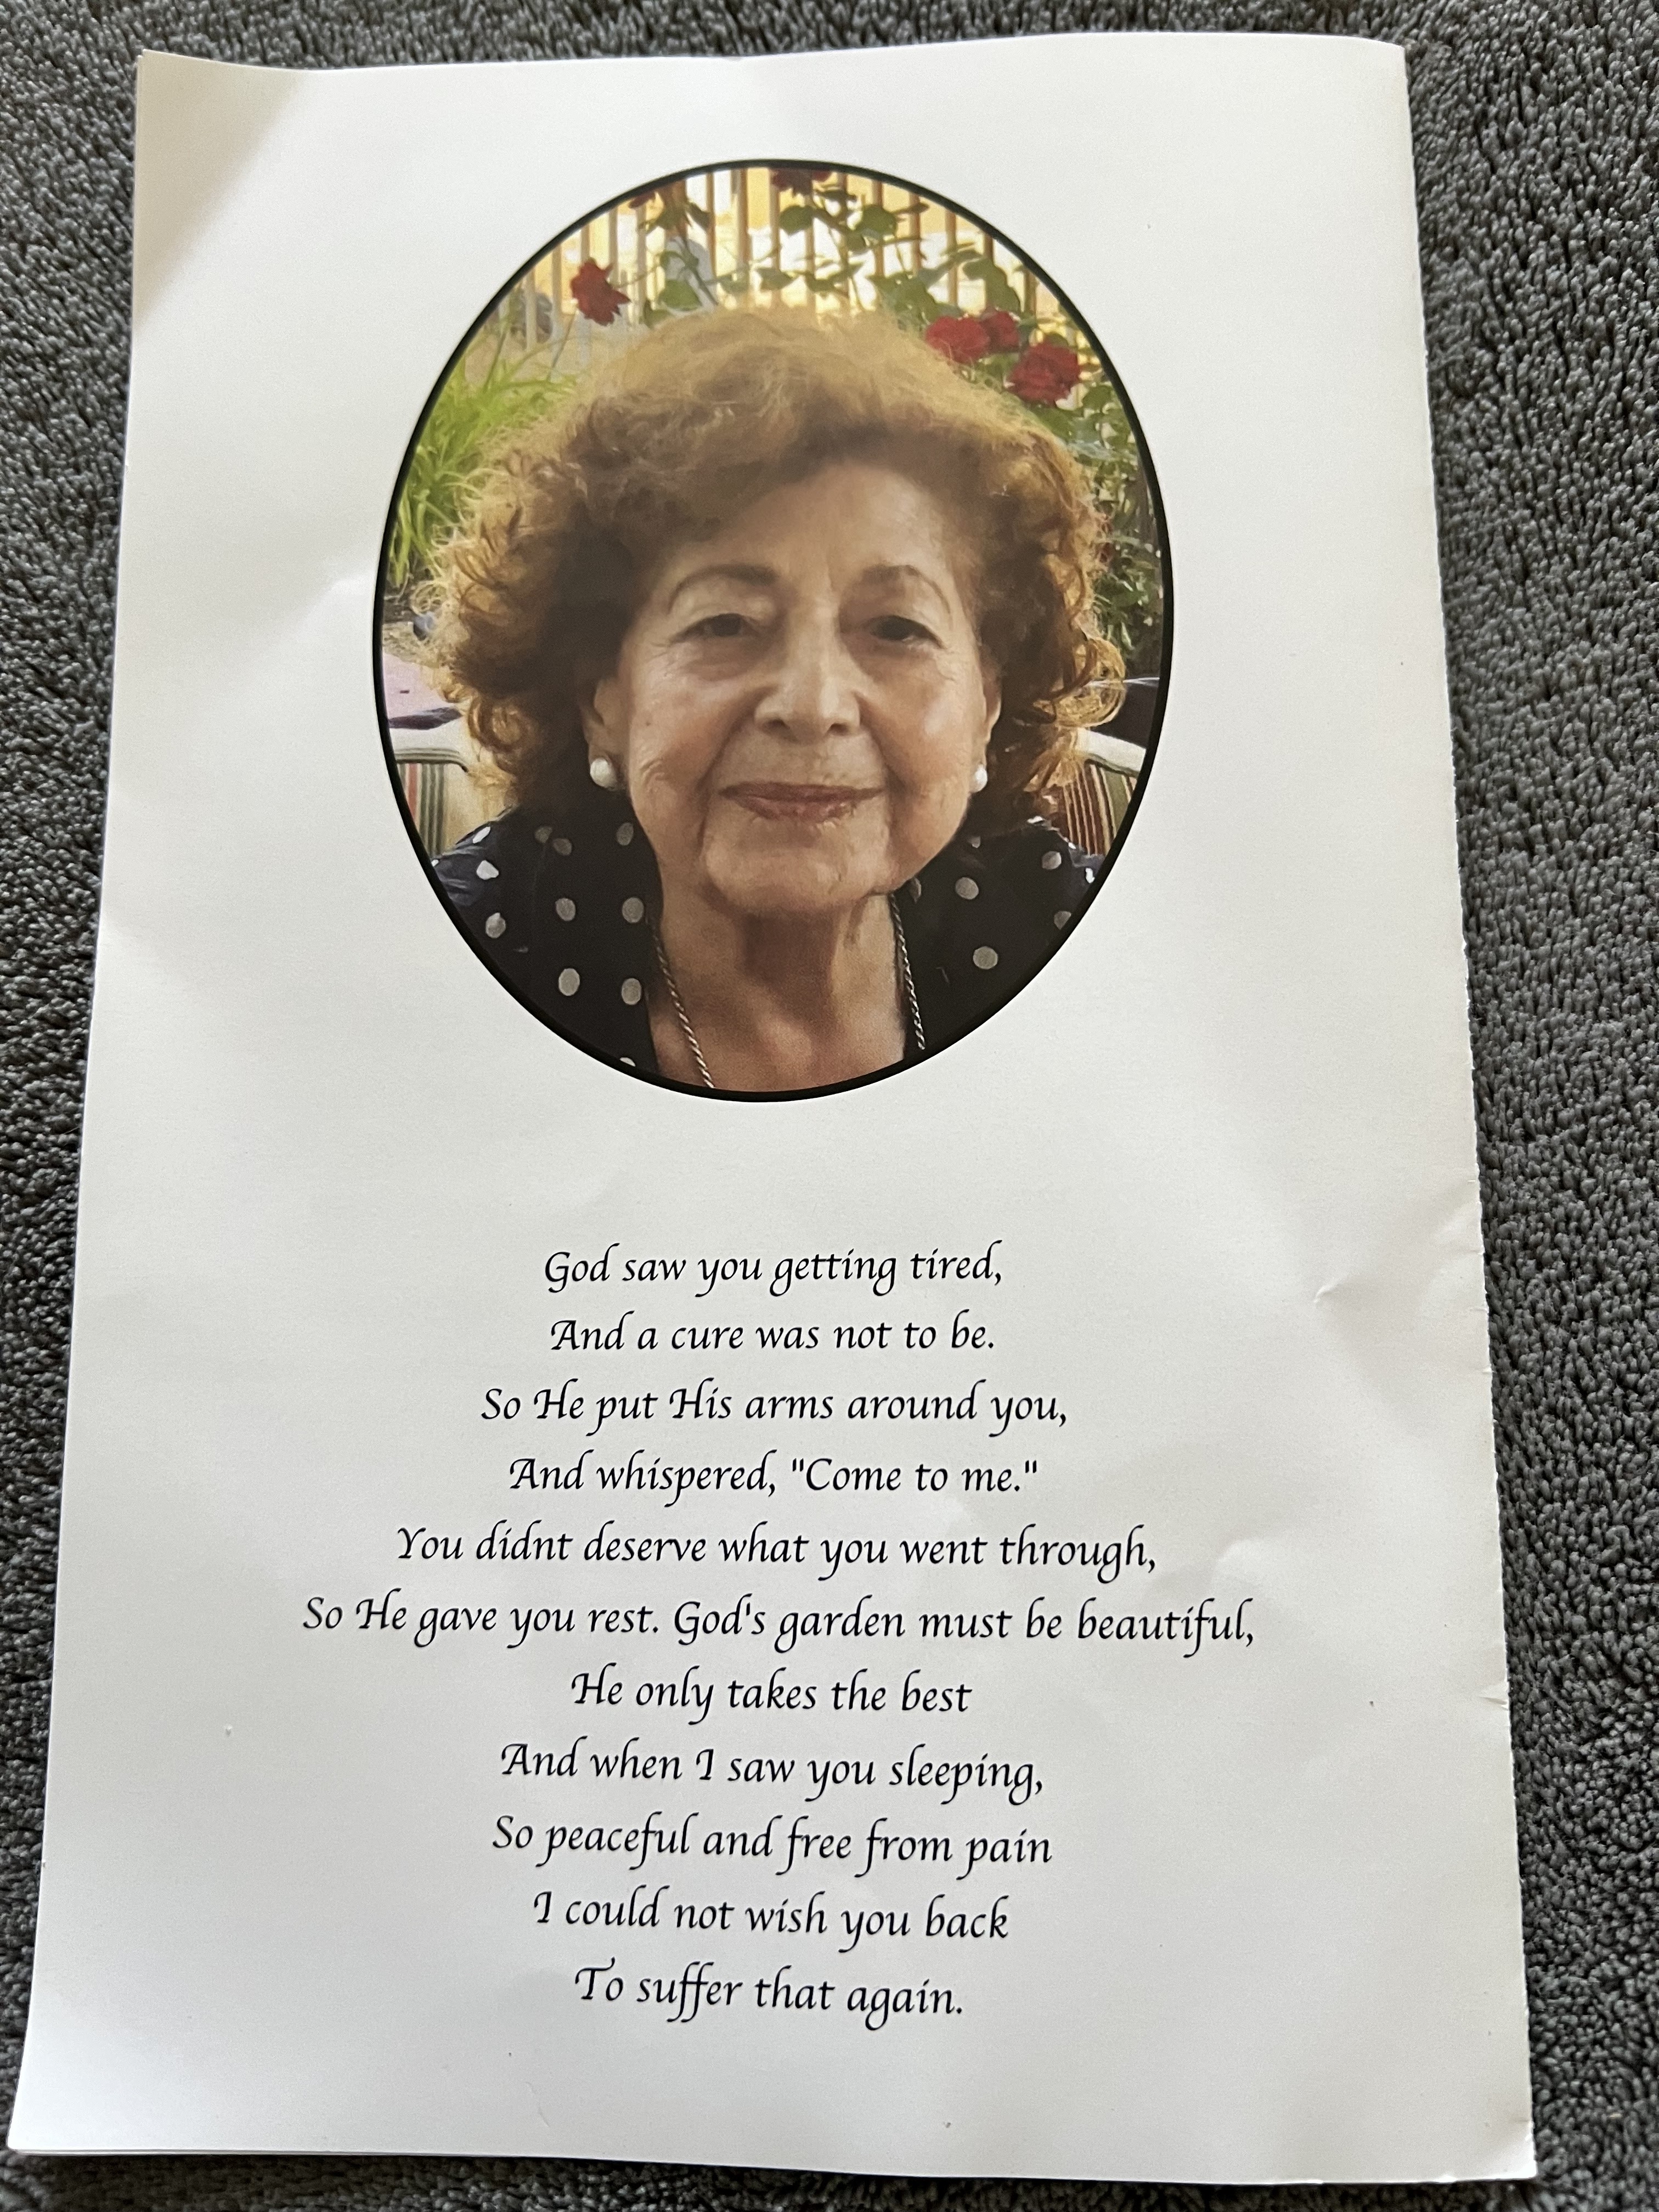 God saw you getting tired,
And a cure was not to be.
So He put His arms around you,
And whispered, "Come to me."
You didnt deserve what you went through,
So He gave you rest. God's garden must be beautiful,
He only takes the best
And when I saw you sleeping,
So peaceful and free from pain
I could not wish you back
To suffer that again.